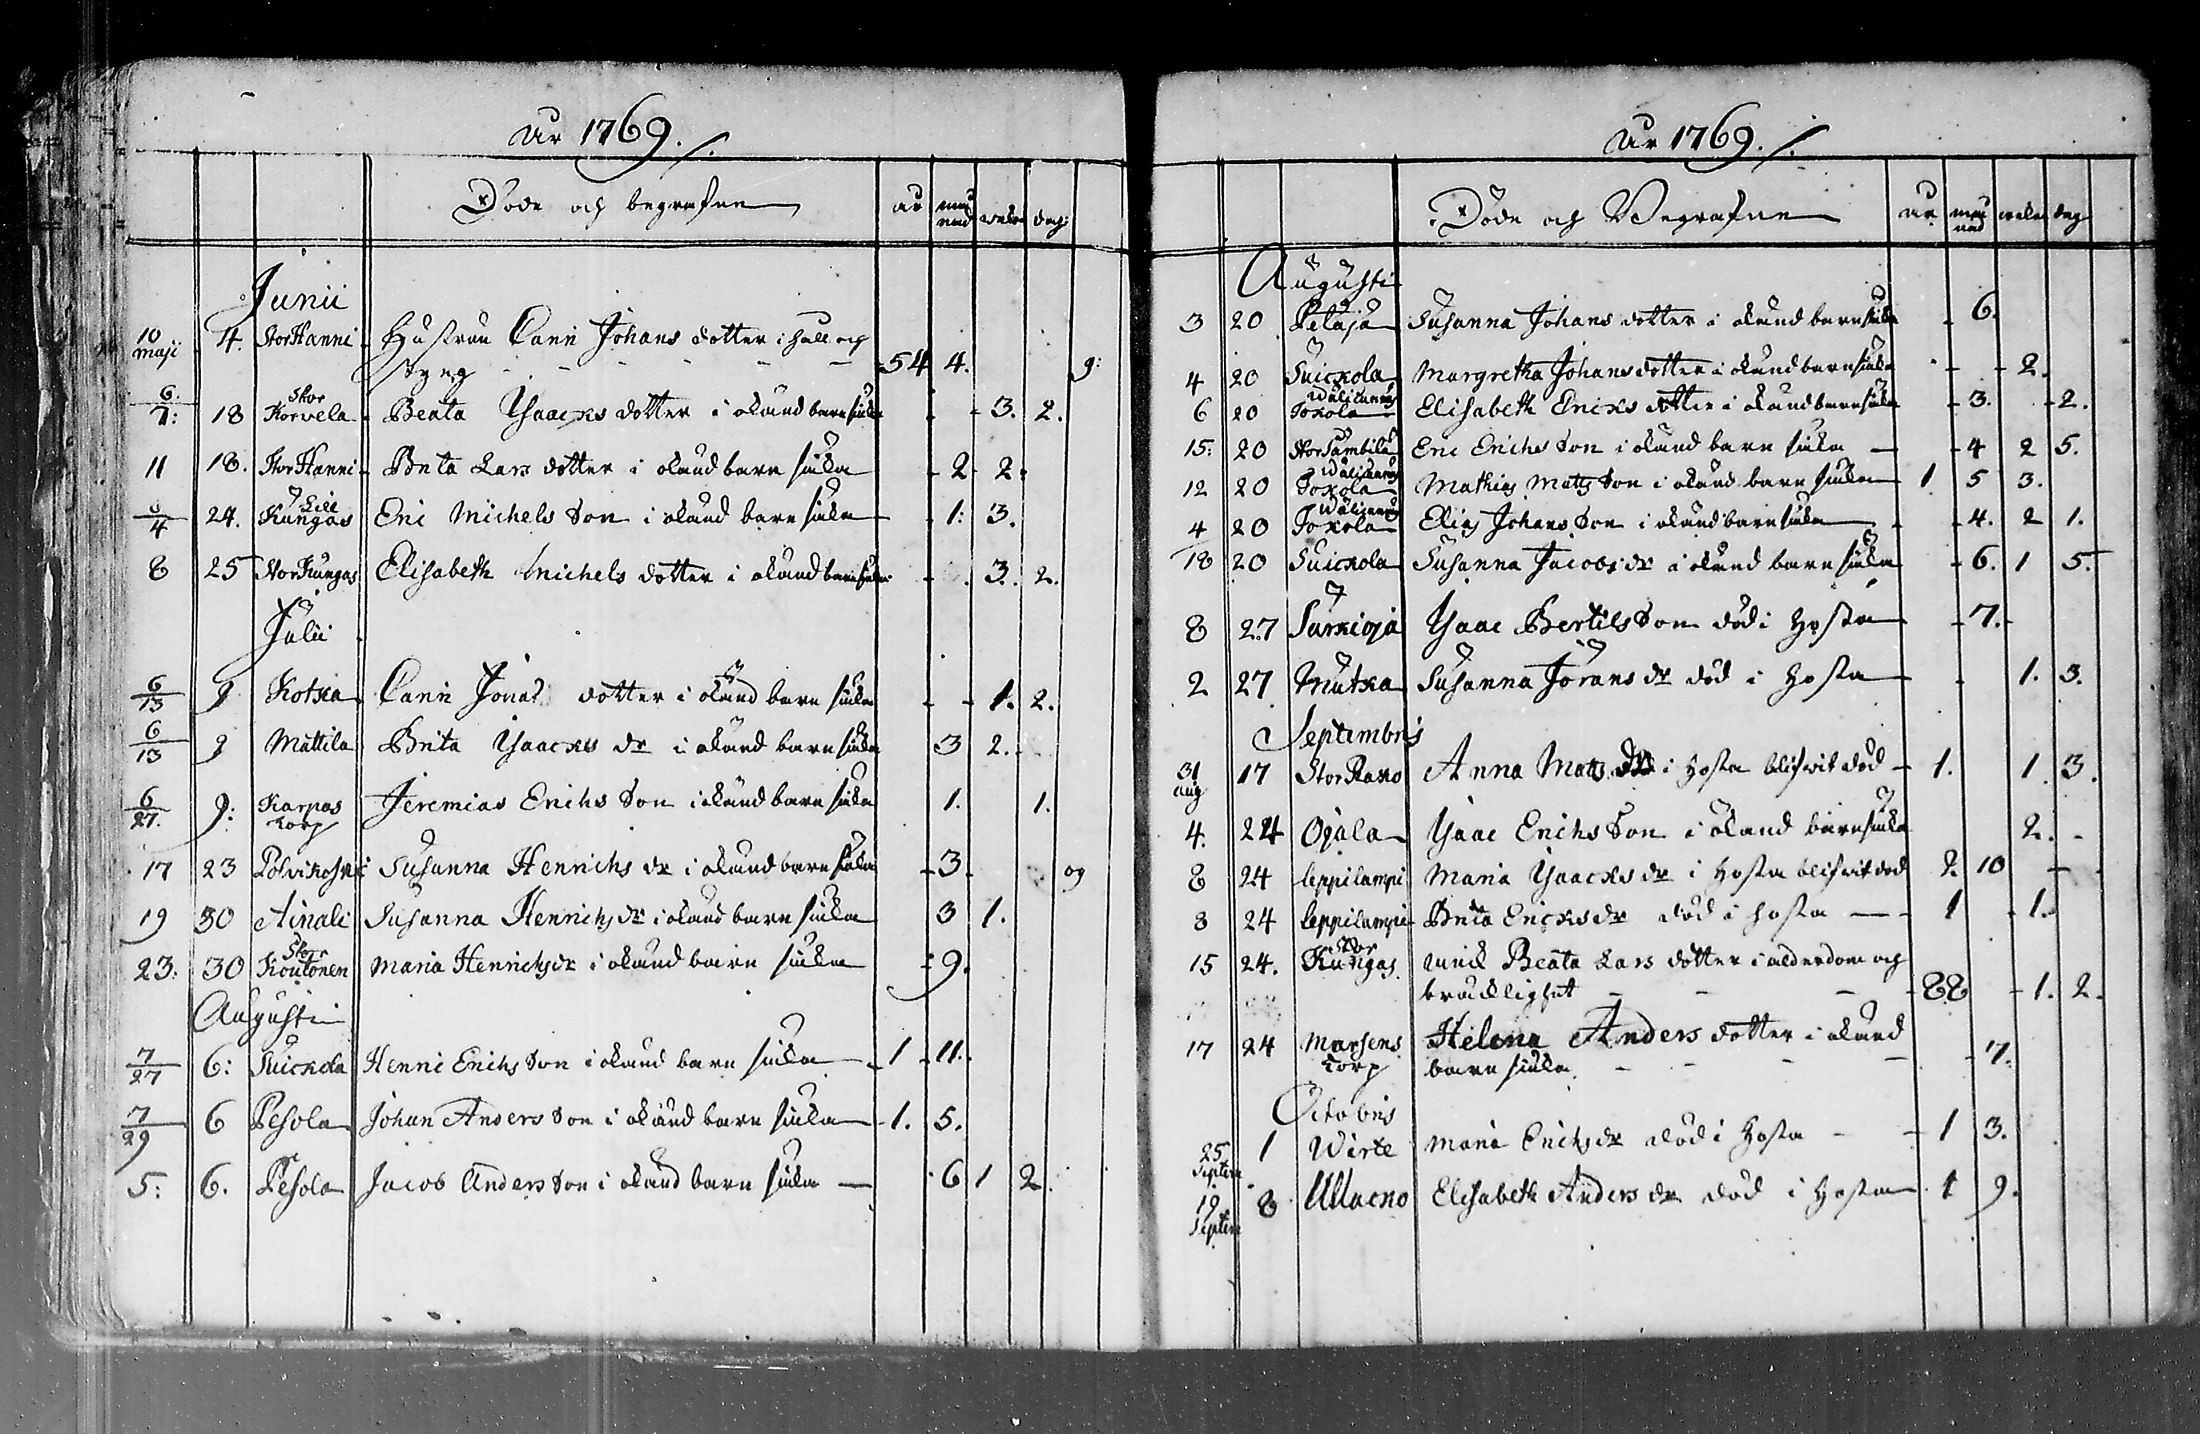 År 1769.
Döde och begrafne år månad wekor dag
Junii
10 maji 4. StorHanni Hustrun Carin Johans dotter i håll och
styng 54 4. 9:
6. 7: 18 Stor Korvela Beata Ysaacks dotter i okänd barn siuka 3. 2.
11 18. StorHanni Brita Lars dotter i okänd barn siuka 2 2.
4 24. Lill Kungas Eric Michels Son i okänd barn siuka 1: 3.
8 25 StorKungas Elisabeth Michels dotter i okänd barn siuka 3. 2.
Julii
6 13 9 Kotka Carin Jonas dotter i okänd barn siuka 1. 2.
6 13 9 Mattila Brita Ysaacks dr i okänd barn siuka 3 2.
6 27. 9: Karpas Torp Jeremias Erichs Son i okänd barn siuka 1. 1.
17 23 Polvikoski Susanna Henrichs dr i okänd barn siuka 3 og
19 30 Ainali Susanna Henrichs dr i okänd barn siuka 3 1.
23: 30 Stor Koutonen Maria Henrichs dr i okänd barn siuka 9.
Augusti
7 27 6: Suickola Henric Erichs Son i okänd barn siuka 1 11.
7 29 6 Pesola Johan Anders Son i okänd barn siuka 1. 5.
5: 6. Pesola Jacob Anders Son i okänd barn siuka 6 1 2.
År 1769.
Döde och Begrafne år månad wekor dag
Augusti
3 20 Petäja Susanna Johans dotter i okänd barn siuka 6.
4 20 Suickola Margretha Johans dotter i okänd barn siuka 2.
6 20 Wälikangas Joxola Elisabeth Ericks dotter i okänd barn siuka 3. 2.
15: 20 StorSambila Eric Erichs Son i okänd barn siuka 4 2 5.
12 20 Wälikangas Joxola Mathias Matts Son i okänd barn siuka 1 5 3.
4 20 Wälikangas Joxola Elias Johans Son i okänd barn siuka 4. 2 1.
18 20 Suickola Susanna Jacobs dr i okänd barn siuka 6. 1 5.
8 27 Surkioja Ysaac Bertils Son död i Hosta 7.
2 27 Mutka Susanna Jörans dr död i Hosta 1. 3.
Septembris
31 aug 17 StorRaxo Anna Matts dr i Hosta blifwit död 1. 1. 3.
4. 24 Ojala Ysaac Erichs Son i okänd barn siuka 2.
8 24 Leppilampi Maria Ysaacks dr i Hosta blifwit död 2 10
8 24 Leppilampi Brita Ericks dr död i hosta 1 1.
15 24. Stor Kungas Enck Beata Lars dotter i ålderdom och
bräcklighet 88 1. 2.
17 24 Marsens Torp Helena Anders dotter i okänd
barn siuka 7.
Octobris
25 Septem 1 Wirte Maria Erichs dr död i Hosta 1 3.
19 Septem 8 Ullacno Elisabeth Anders dr död i Hosta 1 9.